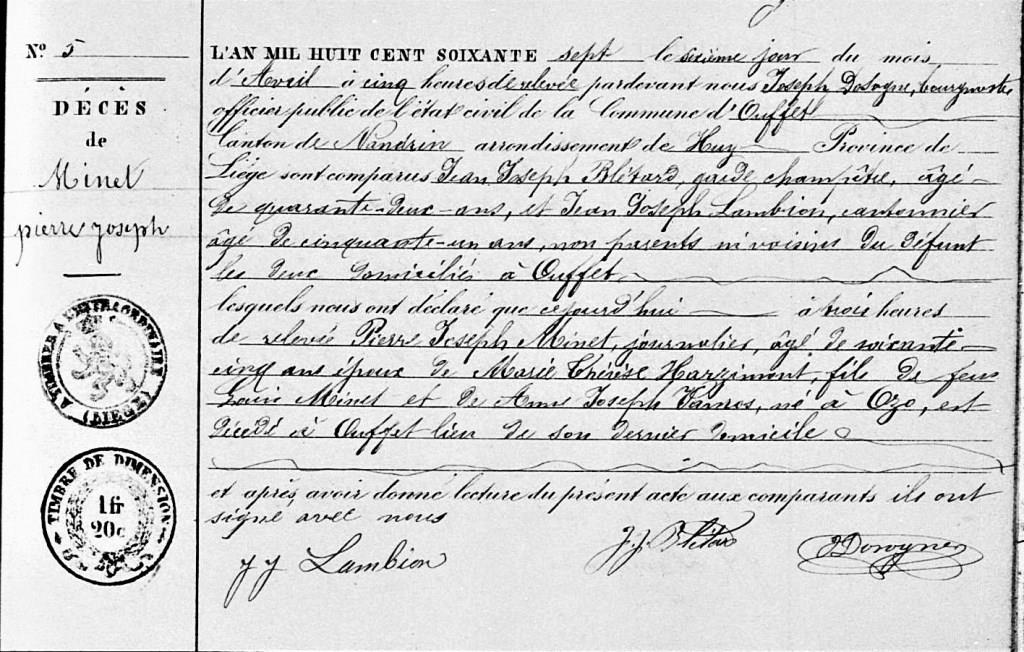 N.º 5
DÉCÈS
de
Minet
pierre joseph
TIMBRE A L'EXTRAORDINAIRE
(LIÉGE)
TIMBRE DE DIMENSION
1 fr
20c
L'AN MIL HUIT CENT SOIXANTE sept le sixième jour du mois
d'Avril à cinq heures de relevée pardevant nous Joseph Dosogne, bourgmestre
officier public de l'état civil de la Commune d'Ouffet
Canton de Nandrin arrondissement de Huy Province de
Liége sont comparus Jean Joseph Blétard, garde champêtre, âgé
de quarante-deux ans, et Jean Joseph Lambion, cantonnier
âgé de cinquante-un ans, non parents ni voisins du défunt
les deux domiciliés à Ouffet
lesquels nous ont déclaré que cejourd'hui à trois heures
de relevée Pierre Joseph Minet, journalier, âgé de soixante
cinq ans époux de Marie Thérèse Harzimont, fils de feu
Louis Minet et de Anne Joseph, né à Ozo, est
décédé à Ouffet lieu de son dernier domicile
et après avoir donné lecture du présent acte aux comparants ils ont
signé avec nous
JJ Lambion
J.J. Blétard
JDosogne